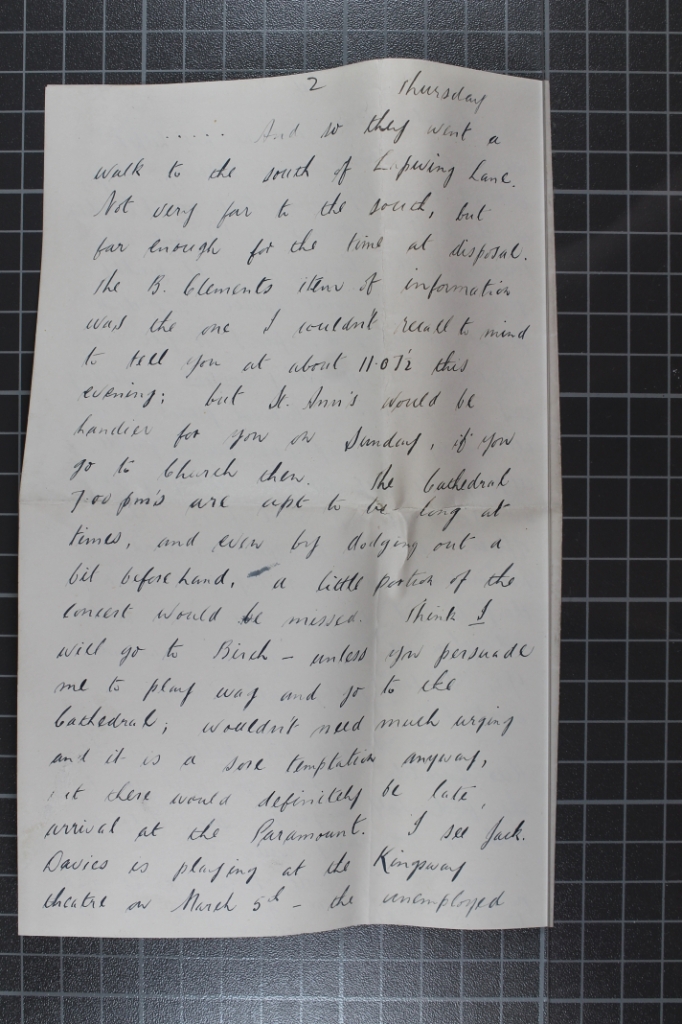 2 Thursday
..... And so they went a
walk to the south of Lapwing Lane.
Not very far to the south, but
far enough for the time at disposal.
The B. Clements item of information
was the one I couldn't recall to mind
to tell you at about 11.07½ this
evening; but St. Ann's would be
handier for you on Sunday, if you
go to Church then. The Cathedral
7.00 pm's are apt to be long at
times, and even by dodging out a
bit beforehand, a little portion of the
concert would be missed. Think I
will go to Birch – unless you persuade
me to play wag and go to the
Cathedral; wouldn't need much urging
and it is a sore temptation anyway,
but there would definitely be late
arrival at the Paramount. I see Jack.
Davies is playing at the Kingsway
theatre on March 5th – the unemployed